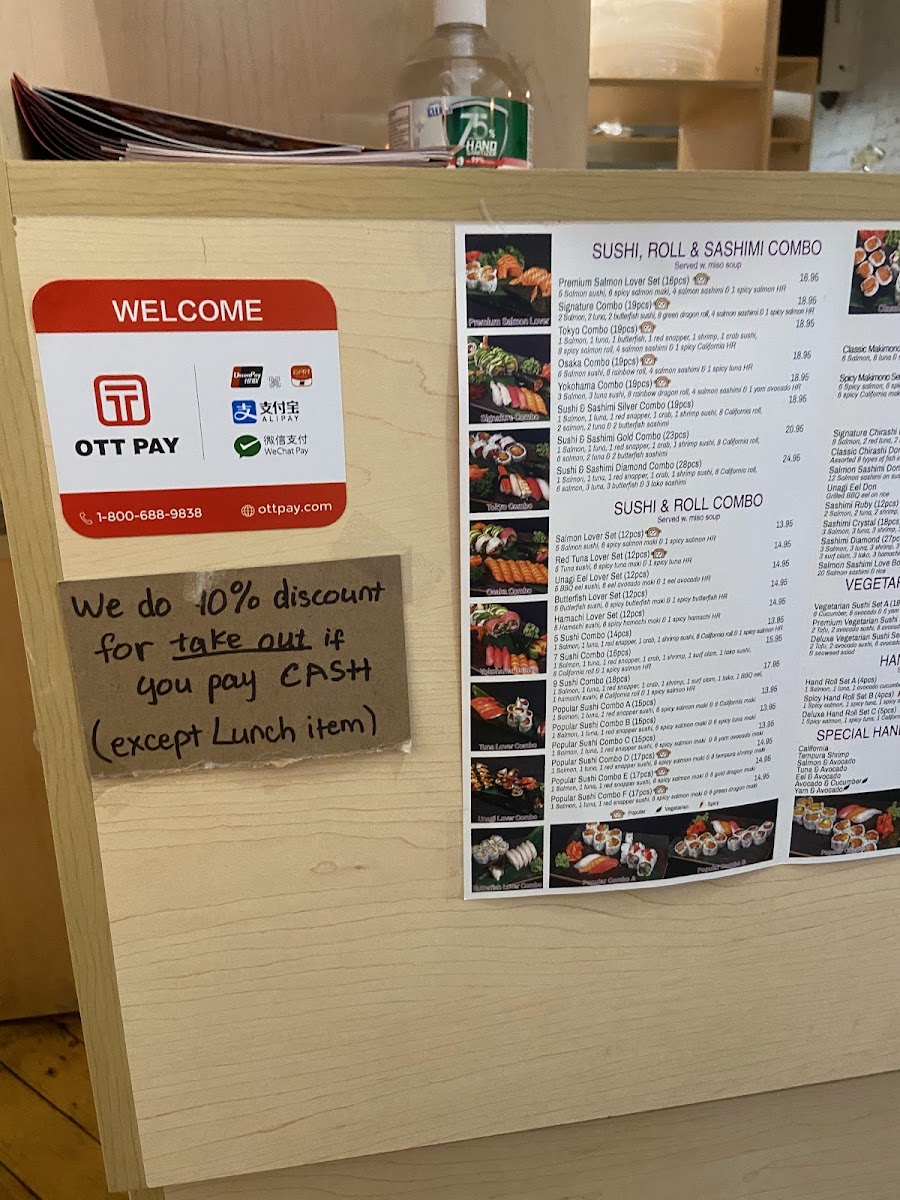 CLEAN
75%
HAND
SANITIZER
WELCOME
OTT PAY
UnionPay
银联
支付宝
ALIPAY
微信支付
WeChat Pay
1-800-688-9838
ottpay.com
We do 10% discount
for take out if
you pay CASH
(except Lunch item)
SUSHI, ROLL & SASHIMI COMBO
Served w. miso soup
Premium Salmon Lover Set (16pcs) 16.95
5 Salmon sushi, 6 spicy salmon maki, 4 salmon sashimi & 1 spicy salmon HR
Signature Combo (19pcs) 18.95
2 Salmon, 2 tuna, 2 butterfish sushi, 8 green dragon roll, 4 salmon sashimi & 1 spicy salmon HR
Tokyo Combo (19pcs) 18.95
1 Salmon, 1 tuna, 1 butterfish, 1 red snapper, 1 shrimp, 1 crab sushi,
8 spicy salmon roll, 4 salmon sashimi & 1 spicy California HR
Osaka Combo (19pcs) 18.95
6 Salmon sushi, 8 rainbow roll, 4 salmon sashimi & 1 spicy tuna HR
Yokohama Combo (19pcs) 18.95
3 Salmon, 3 tuna sushi, 8 rainbow dragon roll, 4 salmon sashimi & 1 yam avocado HR
Sushi & Sashimi Silver Combo (19pcs) 18.95
1 Salmon, 1 tuna, 1 red snapper, 1 crab, 1 shrimp sushi, 8 California roll,
2 salmon, 2 tuna & 2 butterfish sashimi
Sushi & Sashimi Gold Combo (23pcs) 20.95
1 Salmon, 1 tuna, 1 red snapper, 1 crab, 1 shrimp sushi, 8 California roll,
6 salmon, 2 tuna & 2 butterfish sashimi
Sushi & Sashimi Diamond Combo (28pcs) 24.95
1 Salmon, 1 tuna, 1 red snapper, 1 crab, 1 shrimp sushi, 8 California roll,
6 salmon, 3 tuna, 3 butterfish & 3 tako sashimi
SUSHI & ROLL COMBO
Served w. miso soup
Salmon Lover Set (12pcs) 13.95
5 Salmon sushi, 6 spicy salmon maki & 1 spicy salmon HR
Red Tuna Lover Set (12pcs) 14.95
5 Tuna sushi, 6 spicy tuna maki & 1 spicy tuna HR
Unagi Eel Lover Set (12pcs) 14.95
5 BBQ eel sushi, 6 eel avocado maki & 1 eel avocado HR
Butterfish Lover Set (12pcs) 14.95
5 Butterfish sushi, 6 spicy butterfish maki & 1 spicy butterfish HR
Hamachi Lover Set (12pcs) 14.95
5 Hamachi sushi, 6 spicy hamachi maki & 1 spicy hamachi HR
5 Sushi Combo (14pcs) 14.95
1 Salmon, 1 tuna, 1 red snapper, 1 crab, 1 shrimp sushi, 8 California roll & 1 spicy salmon HR
7 Sushi Combo (16pcs) 15.95
1 Salmon, 1 tuna, 1 red snapper, 1 crab, 1 shrimp, 1 surf clam, 1 tako sushi,
8 California roll & 1 spicy salmon HR
9 Sushi Combo (18pcs) 17.95
1 Salmon, 1 tuna, 1 red snapper, 1 crab, 1 shrimp, 1 surf clam, 1 tako, 1 BBQ eel,
1 hamachi sushi, 8 California roll & 1 spicy salmon HR
Popular Sushi Combo A (15pcs) 13.95
1 Salmon, 1 tuna, 1 red snapper sushi, 6 spicy salmon maki & 6 California maki
Popular Sushi Combo B (15pcs) 13.95
1 Salmon, 1 tuna, 1 red snapper sushi, 6 spicy salmon maki & 6 spicy tuna maki
Popular Sushi Combo C (15pcs) 13.95
1 Salmon, 1 tuna, 1 red snapper sushi, 6 spicy salmon maki & 6 yam avocado maki
Popular Sushi Combo D (17pcs) 14.95
1 Salmon, 1 tuna, 1 red snapper sushi, 6 spicy salmon maki & 8 tempura shrimp maki
Popular Sushi Combo E (17pcs) 14.95
1 Salmon, 1 tuna, 1 red snapper sushi, 6 spicy salmon maki & 8 gold dragon maki
Popular Sushi Combo F (17pcs) 14.95
1 Salmon, 1 tuna, 1 red snapper sushi, 6 spicy salmon maki & 8 green dragon maki
Popular Vegetarian Spicy
Premium Salmon Lover
Signature Combo
Tokyo Combo
Osaka Combo
Yokohama Combo
Tuna Lover Combo
Unagi Lover Combo
Butterfish Lover Combo
Popular Combo A
Popular Combo B
Classic Makimono
6 Salmon, 6 tuna &
Spicy Makimono Se
6 Spicy salmon, 6 spi
6 spicy California mak
Signature Chirashi
Classic Chirashi Don
Assorted 8 types of fish
Salmon Sashimi Don
12 Salmon sashimi on sus
Unagi Eel Don
Grilled BBQ eel on rice
Sashimi Ruby (12pcs)
2 Salmon, 2 tuna, 2 shrimp,
Sashimi Crystal (18pcs)
3 Salmon, 3 tuna, 3 shrimp,
Sashimi Diamond (27pc
Salmon Sashimi Love Bo
20 Salmon sashimi & rice
VEGETAR
Vegetarian Sushi Set A (18
Premium Vegetarian Sushi
Deluxe Vegetarian Sushi Se
& seaweed salad
HAN
Hand Roll Set A (4pcs)
1 Salmon, 1 tuna, 1 avocado cucumbe
Spicy Hand Roll Set B (4pcs)
1 Spicy salmon, 1 spicy tuna, 1 spicy
Deluxe Hand Roll Set C (5pcs)
1 Spicy salmon, 1 spicy tuna, 1 Californ
SPECIAL HAN
California
Tempura Shrimp
Salmon & Avocado
Tuna & Avocado
Eel & Avocado
Avocado & Cucumber
Yam & Avocado